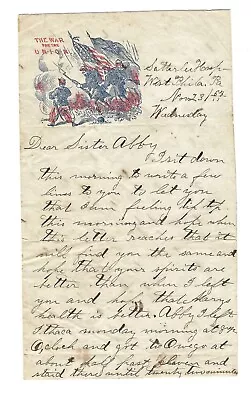 THE WAR
FOR THE
UNION
Satterlee Hosp
West Phila. Pa
Wednesday
Dear Sister Abby
I sit down
this morning to write a few
lines to you to let you
that I am feeling
this morning and hope when
this letter reaches that it
will find you the same and
hope that your spirits are
better than when I left
you and hope that Marys
health is better. Abby I left
Ithaca monday morning at
Oclock and got to Owego at
about half past eleven and
staid there until twenty two minutes